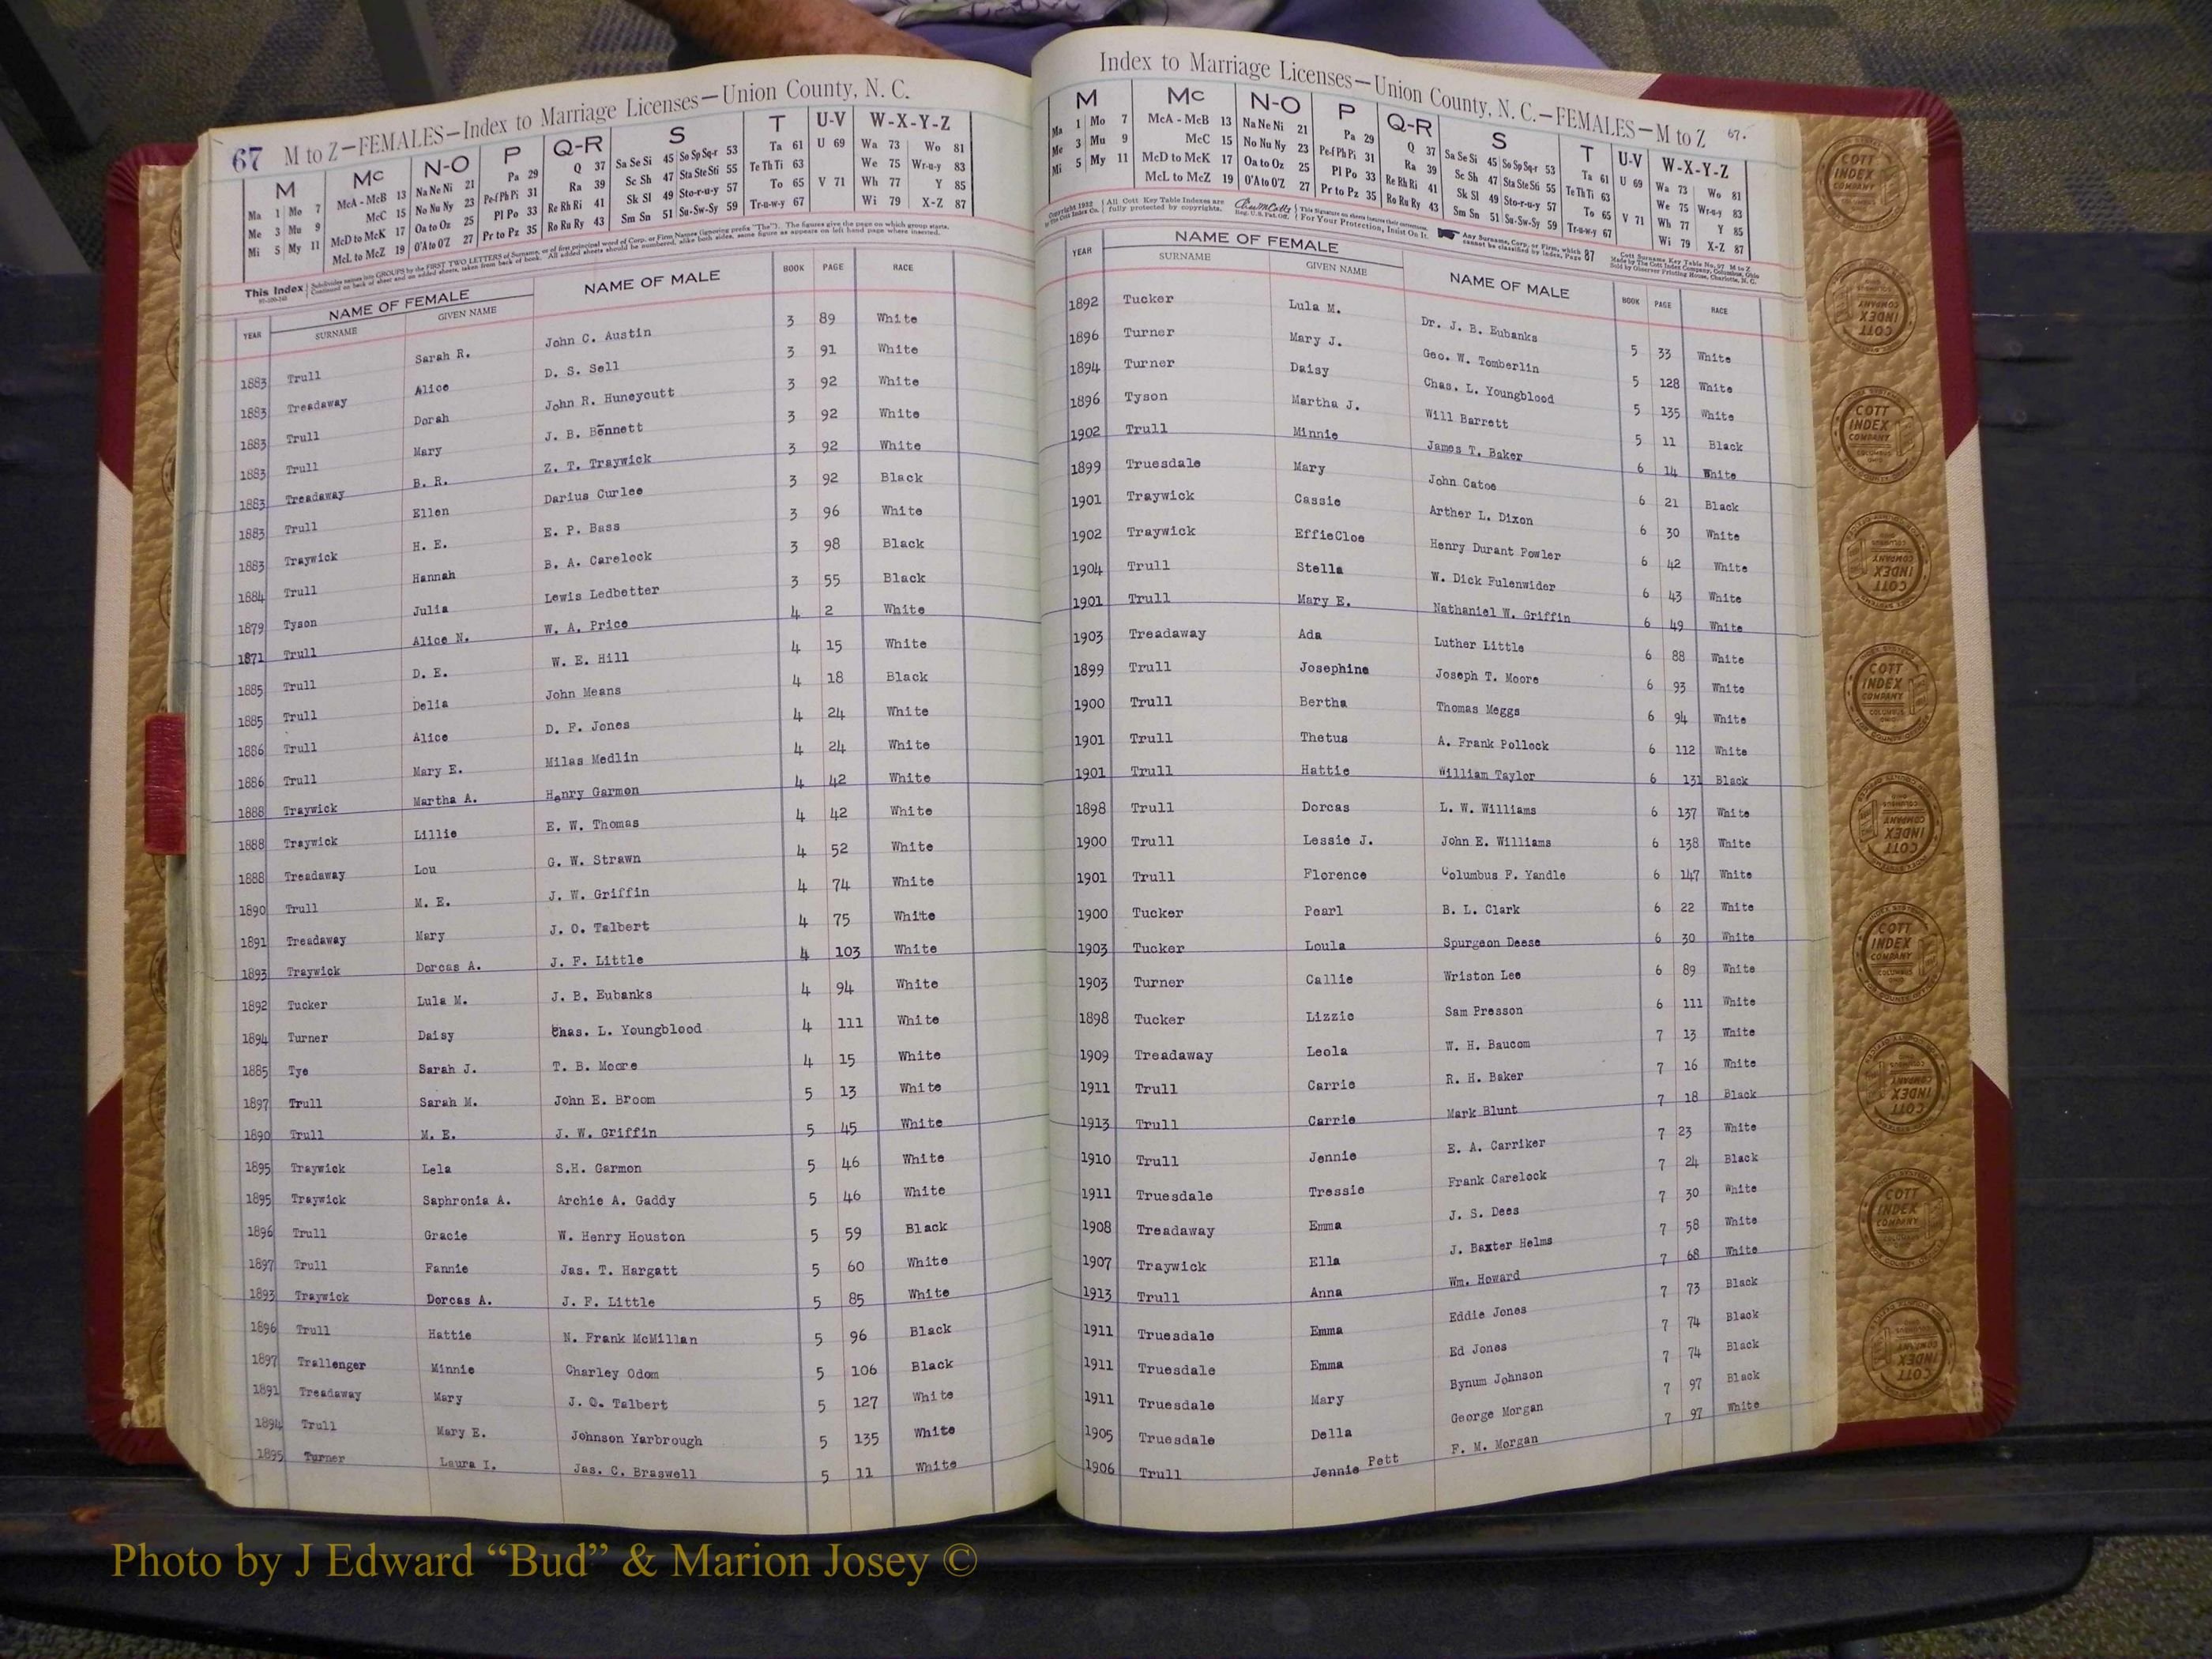 67 M to Z—FEMALES—Index to Marriage Licenses—Union County, N. C.
M Mc N-O P Q-R S T U-V W-X-Y-Z
Ma 1 Mo 7 McA - McB 13 Na Ne Ni 21 Pa 29 Q 37 Sa Se Si 45 So Sp Sq-r 53 Ta 61 U 69 Wa 73 Wo 81
Me 3 Mu 9 McC 15 No Nu Ny 23 Pe-f Ph Pi 31 Ra 39 Sc Sh 47 Sta Ste Sti 55 Te Th Ti 63 We 75 Wr-u-y 83
Mi 5 My 11 McD to McK 17 Oa to Oz 25 Pl Po 33 Re Rh Ri 41 Sk Sl 49 Sto-r-u-y 57 To 65 V 71 Wh 77 Y 85
McL to McZ 19 O'A to O'Z 27 Pr to Pz 35 Ro Ru Ry 43 Sm Sn 51 Su-Sw-Sy 59 Tr-u-w-y 67 Wi 79 X-Z 87
This Index
YEAR NAME OF FEMALE NAME OF MALE BOOK PAGE RACE
SURNAME GIVEN NAME
1883 Trull Sarah R. John C. Austin 3 89 White
1883 Treadaway Alice D. S. Sell 3 91 White
1883 Trull Dorah John R. Huneycutt 3 92 White
1883 Trull Mary J. B. Bennett 3 92 White
1883 Treadaway B. R. Z. T. Traywick 3 92 White
1883 Trull Ellen Darius Curlee 3 92 Black
1883 Traywick H. E. E. P. Bass 3 96 White
1884 Trull Hannah B. A. Carelock 3 98 Black
1879 Tyson Julia Lewis Ledbetter 3 55 Black
1871 Trull Alice N. W. A. Price 4 2 White
1885 Trull D. E. W. E. Hill 4 15 White
1885 Trull Delia John Means 4 18 Black
1886 Trull Alice D. F. Jones 4 24 White
1886 Trull Mary E. Milas Medlin 4 24 White
1888 Traywick Martha A. Henry Garmon 4 42 White
1888 Traywick Lillie E. W. Thomas 4 42 White
1888 Treadaway Lou G. W. Strawn 4 52 White
1890 Trull M. E. J. W. Griffin 4 74 White
1891 Treadaway Mary J. O. Talbert 4 75 White
1893 Traywick Dorcas A. J. F. Little 4 103 White
1892 Tucker Lula M. J. B. Eubanks 4 94 White
1894 Turner Daisy Chas. L. Youngblood 4 111 White
1885 Tye Sarah J. T. B. Moore 4 15 White
1897 Trull Sarah M. John E. Broom 5 13 White
1890 Trull M. E. J. W. Griffin 5 45 White
1895 Traywick Lela S.H. Garmon 5 46 White
1895 Traywick Saphronia A. Archie A. Gaddy 5 46 White
1896 Trull Gracie W. Henry Houston 5 59 Black
1897 Trull Fannie Jas. T. Hargatt 5 60 White
1893 Traywick Dorcas A. J. F. Little 5 85 White
1896 Trull Hattie N. Frank McMillan 5 96 Black
1897 Trallenger Minnie Charley Odom 5 106 Black
1891 Treadaway Mary J. O. Talbert 5 127 White
1894 Trull Mary E. Johnson Yarbrough 5 135 White
1895 Turner Laura I. Jas. C. Braswell 5 11 White
Index to Marriage Licenses—Union County, N. C.—FEMALES—M to Z 67.
M Mc N-O P Q-R S T U-V W-X-Y-Z
Ma 1 Mo 7 McA - McB 13 Na Ne Ni 21 Pa 29 Q 37 Sa Se Si 45 So Sp Sq-r 53 Ta 61 U 69 Wa 73 Wo 81
Me 3 Mu 9 McC 15 No Nu Ny 23 Pe-f Ph Pi 31 Ra 39 Sc Sh 47 Sta Ste Sti 55 Te Th Ti 63 We 75 Wr-u-y 83
Mi 5 My 11 McD to McK 17 Oa to Oz 25 Pl Po 33 Re Rh Ri 41 Sk Sl 49 Sto-r-u-y 57 To 65 V 71 Wh 77 Y 85
McL to McZ 19 O'A to O'Z 27 Pr to Pz 35 Ro Ru Ry 43 Sm Sn 51 Su-Sw-Sy 59 Tr-u-w-y 67 Wi 79 X-Z 87
Copyright 1932 All Cott Key Table Indexes are fully protected by copyrights. For Your Protection, Insist On It. Any Surname, Corp. or Firm, which cannot be classified by Index, Page 87
YEAR NAME OF FEMALE NAME OF MALE BOOK PAGE RACE
SURNAME GIVEN NAME
1892 Tucker Lula M. Dr. J. B. Eubanks 5 33 White
1896 Turner Mary J. Geo. W. Tomberlin 5 128 White
1894 Turner Daisy Chas. L. Youngblood 5 135 White
1896 Tyson Martha J. Will Barrett 5 11 Black
1902 Trull Minnie James T. Baker 6 14 White
1899 Truesdale Mary John Catoe 6 21 Black
1901 Traywick Cassie Arther L. Dixon 6 30 White
1902 Traywick EffieCloe Henry Durant Fowler 6 42 White
1904 Trull Stella W. Dick Fulenwider 6 43 White
1901 Trull Mary E. Nathaniel W. Griffin 6 49 White
1903 Treadaway Ada Luther Little 6 88 White
1899 Trull Josephine Joseph T. Moore 6 93 White
1900 Trull Bertha Thomas Meggs 6 94 White
1901 Trull Thetus A. Frank Pollock 6 112 White
1901 Trull Hattie William Taylor 6 131 Black
1898 Trull Dorcas L. W. Williams 6 137 White
1900 Trull Lessie J. John E. Williams 6 138 White
1901 Trull Florence Columbus F. Yandle 6 147 White
1900 Tucker Pearl B. L. Clark 6 22 White
1903 Tucker Loula Spurgeon Deese 6 30 White
1903 Turner Callie Wriston Lee 6 89 White
1898 Tucker Lizzie Sam Presson 6 111 White
1909 Treadaway Leola W. H. Baucom 7 13 White
1911 Trull Carrie R. H. Baker 7 16 White
1913 Trull Carrie Mark Blunt 7 18 Black
1910 Trull Jennie E. A. Carriker 7 23 White
1911 Truesdale Tressie Frank Carelock 7 24 Black
1908 Treadaway Emma J. S. Dees 7 30 White
1907 Traywick Ella J. Baxter Helms 7 58 White
1913 Trull Anna Wm. Howard 7 68 White
1911 Truesdale Emma Eddie Jones 7 73 Black
1911 Truesdale Emma Ed Jones 7 74 Black
1911 Truesdale Mary Bynum Johnson 7 74 Black
1905 Truesdale Della George Morgan 7 97 Black
1906 Trull Jennie Pett F. M. Morgan 7 97 White
COTT INDEX COMPANY COLUMBUS
Photo by J Edward “Bud” & Marion Josey ©